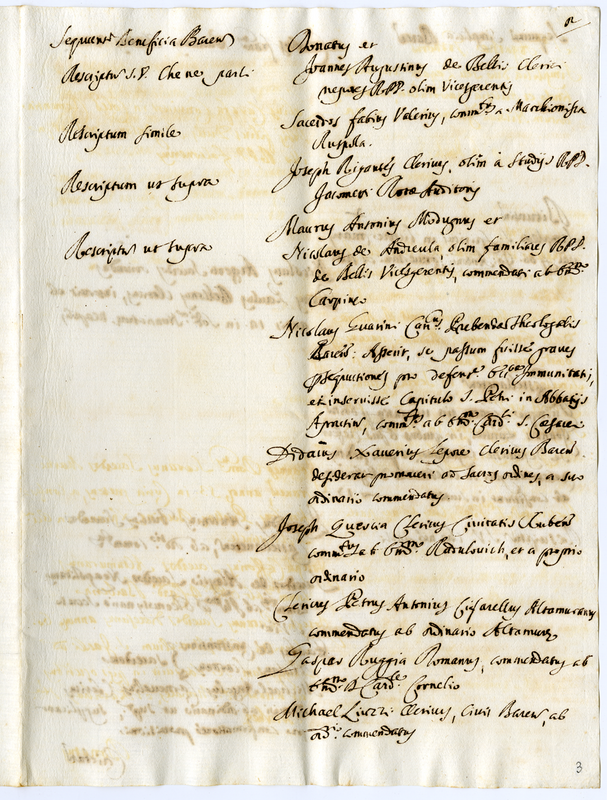 Sequuntur Beneficia Baren
Rescriptus S.V. Che ne parli
Rescriptum simile
Rescriptum ut supra
Rescriptus ut supra
Donatus et
Joannes Augustinus de Bellis Clerici
nepotes RPD. olim Vicesgerentis
Sacerdos fabius Valerius, comm.tus a Marchionissa
Ruspola.
Joseph Ripantes Clericus, olim à Studijs RPD.
Jacometi Rotæ Auditoris
Maurus Antonius Modugnus et
Nicolaus de Andreula, olim familiares RPD.
de Bellis Vicesgerentis, commendati ab Em.o
Carpineo
Nicolaus Guarini Can.cus Prebendæ Theologalis
Baren: Asserit, se passum fuisse graves
persequutiones pro defens.e Ecc.cæ Immunitatis,
et inservisse Capitulo S. Petri in Abbatijs
Aprutin, comm.tus ab Em.o Card. S. Cæsareo
Didacus Xaverius Lepore Clericus Baren.
desiderat promoveri ad Sacros ordines, a suo
ordinario commendatus.
Joseph Quercia Clericus Civitatis Ruben
comm.tus ab Em.o Radulovich, et a proprio
ordinario
Clericus Petrus Antonius Cifarellus Altamuranus
commendatus ab ordinario Altamuræ
Gaspar Ruggia Romanus, commendatus ab
Em.o D Card. Cornelio
Michael Liuzzi Clericus, Civis Baren, ab
commendatus
3